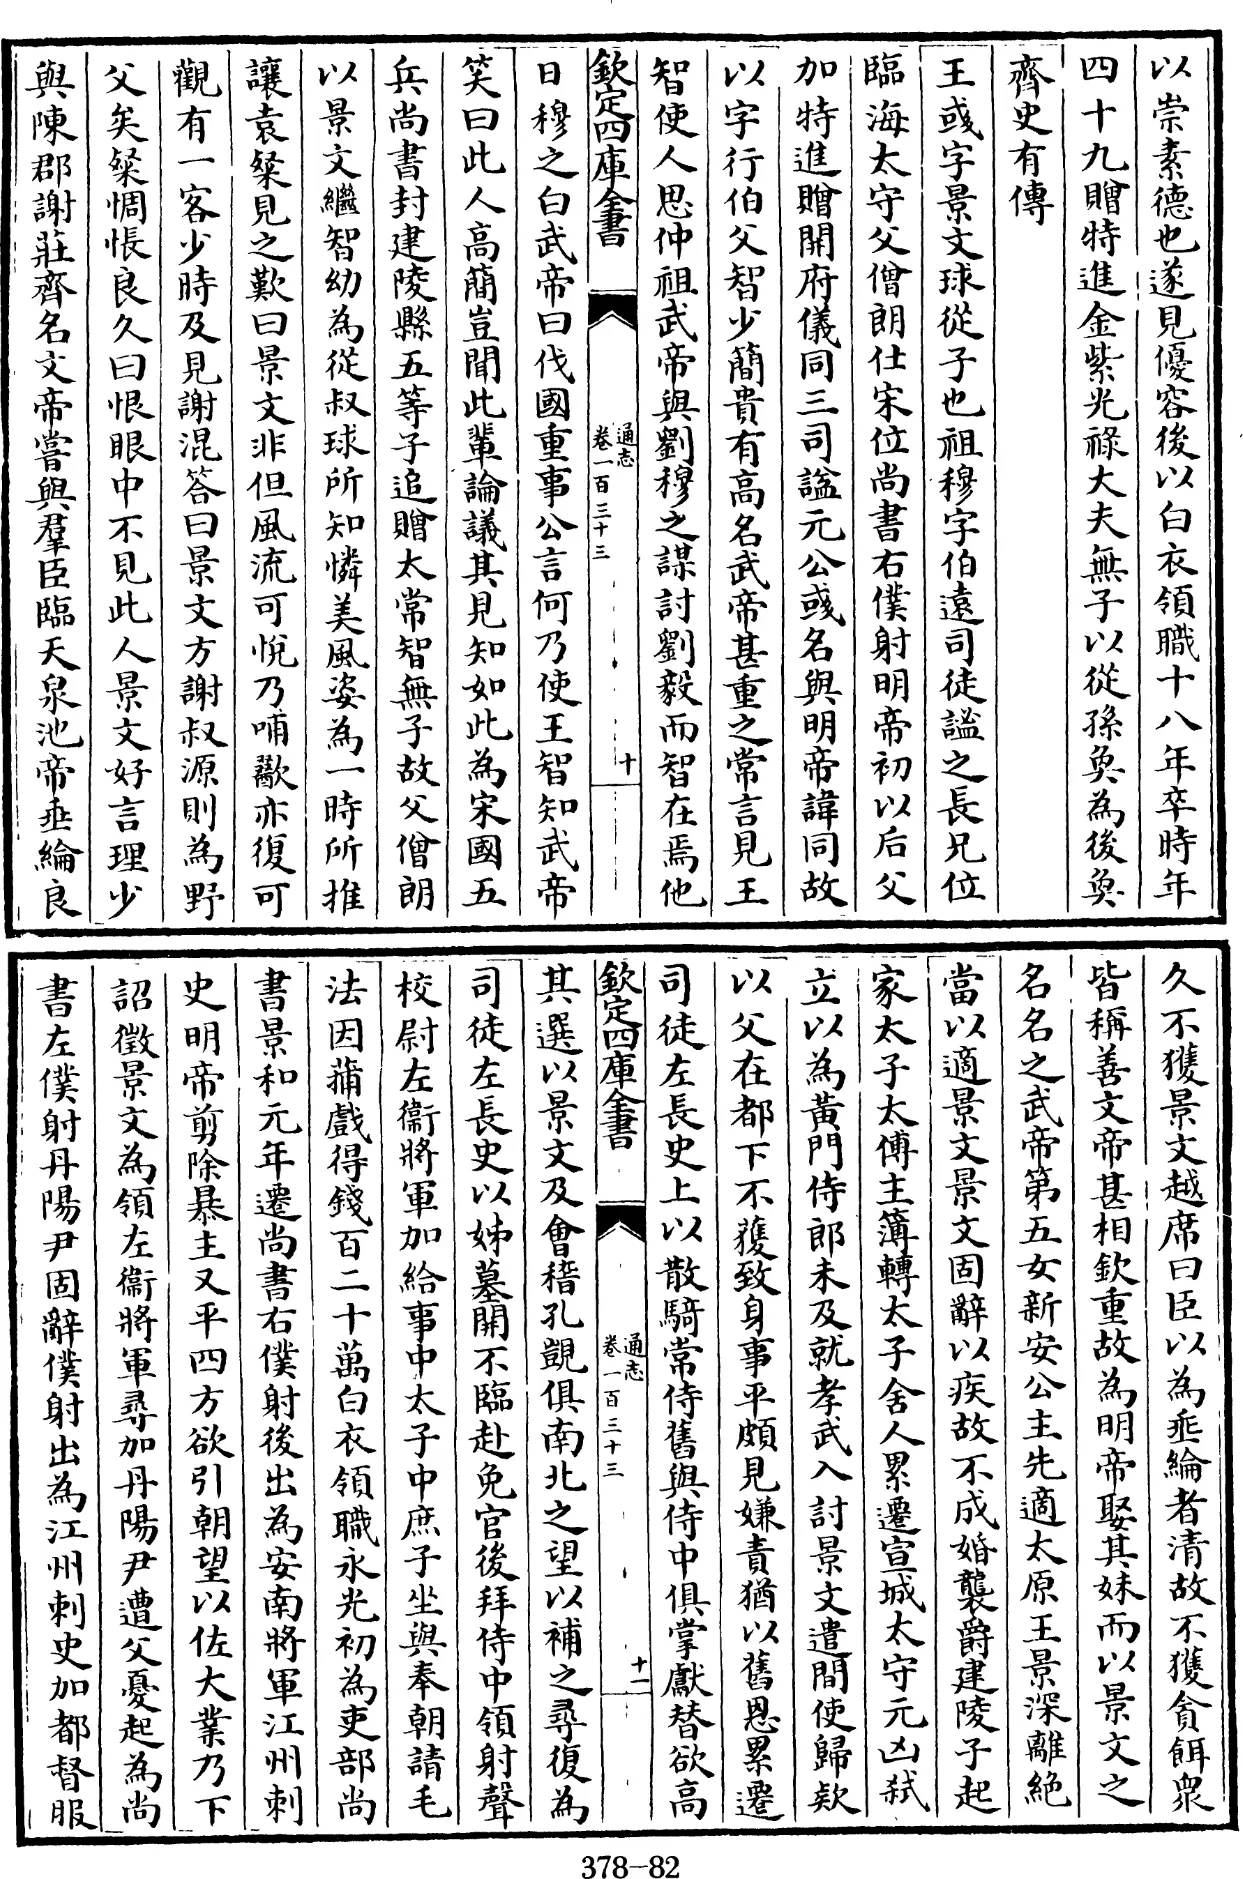 以崇素德也遂見優容後以白衣領職十八年卒時年
四十九贈特進金紫光祿大夫無子以從孫奐為後奐
齊史有傳
王彧字景文球從子也祖穆字伯遠司徒謐之長兄位
臨海太守父僧朗仕宋位尚書右僕射明帝初以后父
加特進贈開府儀同三司諡元公彧名與明帝諱同故
以字行伯父智少簡貴有高名武帝甚重之常言見王
智使人思仲祖武帝與劉穆之謀討劉毅而智在焉他
欽定四庫全書
通志
卷一百三十三
十
日穆之白武帝曰伐國重事公言何乃使王智知武帝
笑曰此人高簡豈聞此輩論議其見知如此為宋國五
兵尚書封建陵縣五等子追贈太常智無子故父僧朗
以景文繼智幼為從叔球所知憐美風姿為一時所推
讓袁粲見之歎曰景文非但風流可悅乃哺歠亦復可
觀有一客少時及見謝混答曰景文方謝叔源則為野
父矣粲惆悵良久曰恨眼中不見此人景文好言理少
與陳郡謝莊齊名文帝嘗與羣臣臨天泉池帝垂綸良
久不獲景文越席曰臣以為垂綸者清故不獲貪餌衆
皆稱善文帝甚相欽重故為明帝娶其妹而以景文之
名名之武帝第五女新安公主先適太原王景深離絶
當以適景文景文固辭以疾故不成婚襲爵建陵子起
家太子太傅主簿轉太子舍人累遷宣城太守元凶弑
立以為黃門侍郎未及就孝武入討景文遣間使歸欵
以父在都下不獲致身事平頗見嫌責猶以舊恩累遷
司徒左長史上以散騎常侍舊與侍中俱掌獻替欲高
欽定四庫全書
通志
卷一百三十三
十一
其選以景文及會稽孔覬俱南北之望以補之尋復為
司徒左長史以姊墓開不臨赴免官後拜侍中領射聲
校尉左衞將軍加給事中太子中庶子坐與奉朝請毛
法因蒱戲得錢百二十萬白衣領職永光初為吏部尚
書景和元年遷尚書右僕射後出為安南將軍江州刺
史明帝剪除暴主又平四方欲引朝望以佐大業乃下
詔徵景文為領左衞將軍尋加丹陽尹遭父憂起為尚
書左僕射丹陽尹固辭僕射出為江州刺史加都督服
378-82